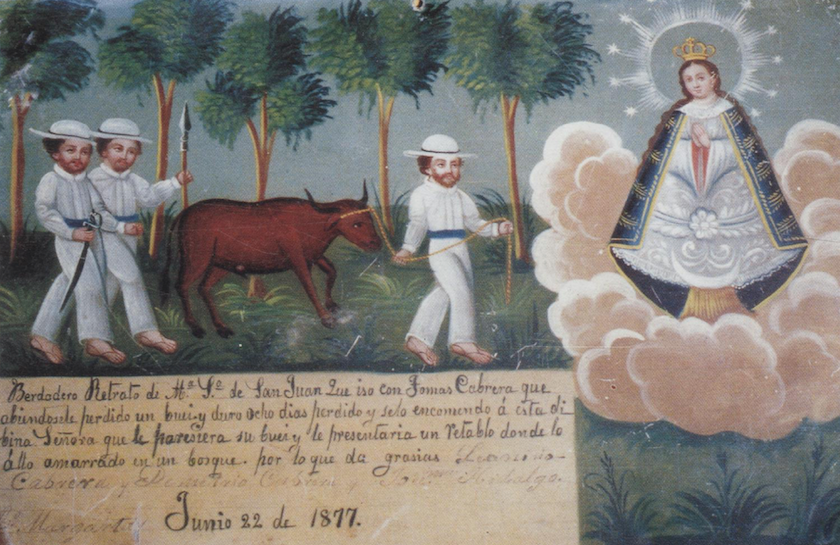 Berdadero Retrato de Nª Sª de San Juan Que iso con Tomas Cabrera que
abiendosele perdido un buei. y duro ocho dias perdido y selo encomendo á esta di
bina Señora que le paresiera su buei y le presentaria un retablo donde lo
állo amarrado en un bosque. por lo que da grasias
Cabrera y Demetrio y Hidalgo.
Junio 22 de 1877.